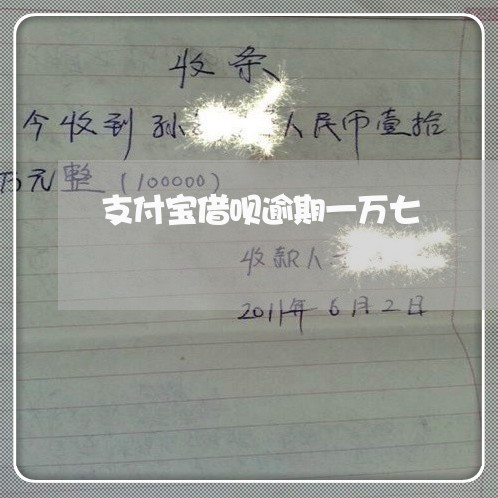 收条
今收到孙 人民币壹拾
万元整(100000)
支付宝借呗逾期一万七
收款人
2011年6月2日